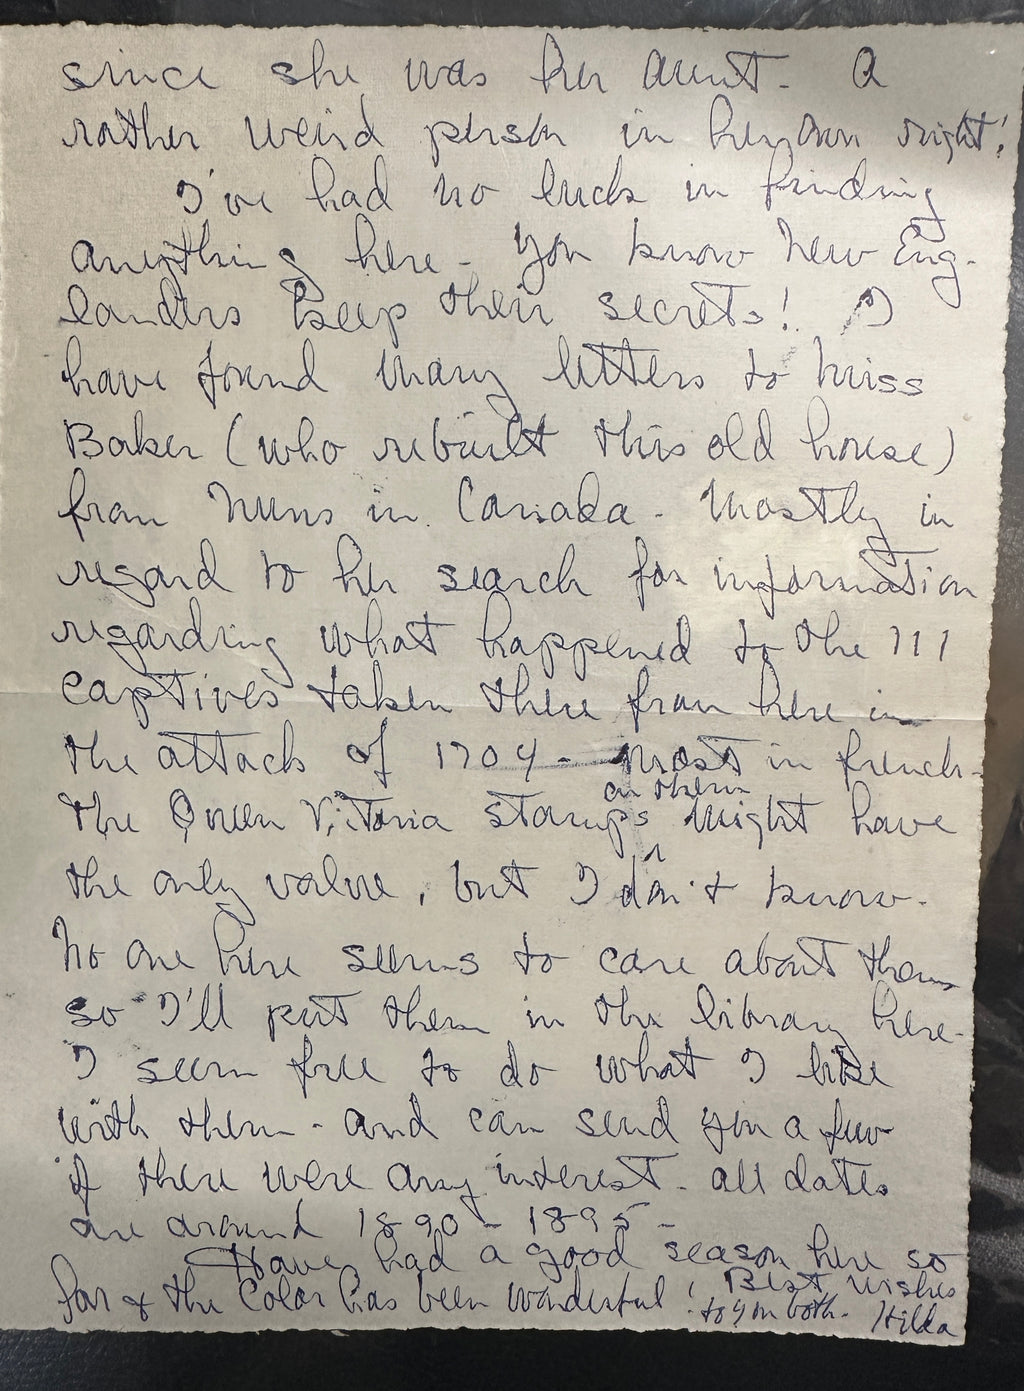 since she was her aunt. A
rather weird person in her own right!
I've had no luck in finding
anything here - You know New Eng-
landers keep their secrets! I
have found many letters to Miss
Baker (who rebuilt this old house)
from Nuns in Canada - Mostly in
regard to her search for information
regarding what happened to the 111
captives taken there from here in
the attack of 1704 - most in french -
on them
The Queen Vitoria stamps might have
the only value, but I don't know.
No one here seems to care about them
so I'll put them in the library here.
I seem free to do what I like
with them - and can send you a few
if there were any interest - all dates
are around 1890 - 1895 -
Have had a good season here so
far & the Color has been wonderful! Best wishes
to you both - Hilda